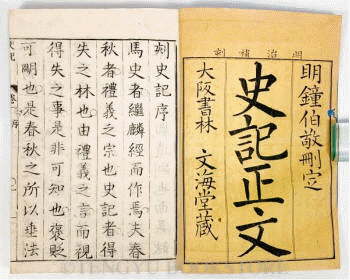 明治補刻
明鐘伯敬刪定
史記正文
大阪書林 文海堂蔵
刻史記序
馬史者繼麟經而作焉夫春
秋者禮義之宗也史記者得
失之林也由禮義之言而視
得失之事是非可知也褒貶
可也是春秋之所以垂法
史記
序